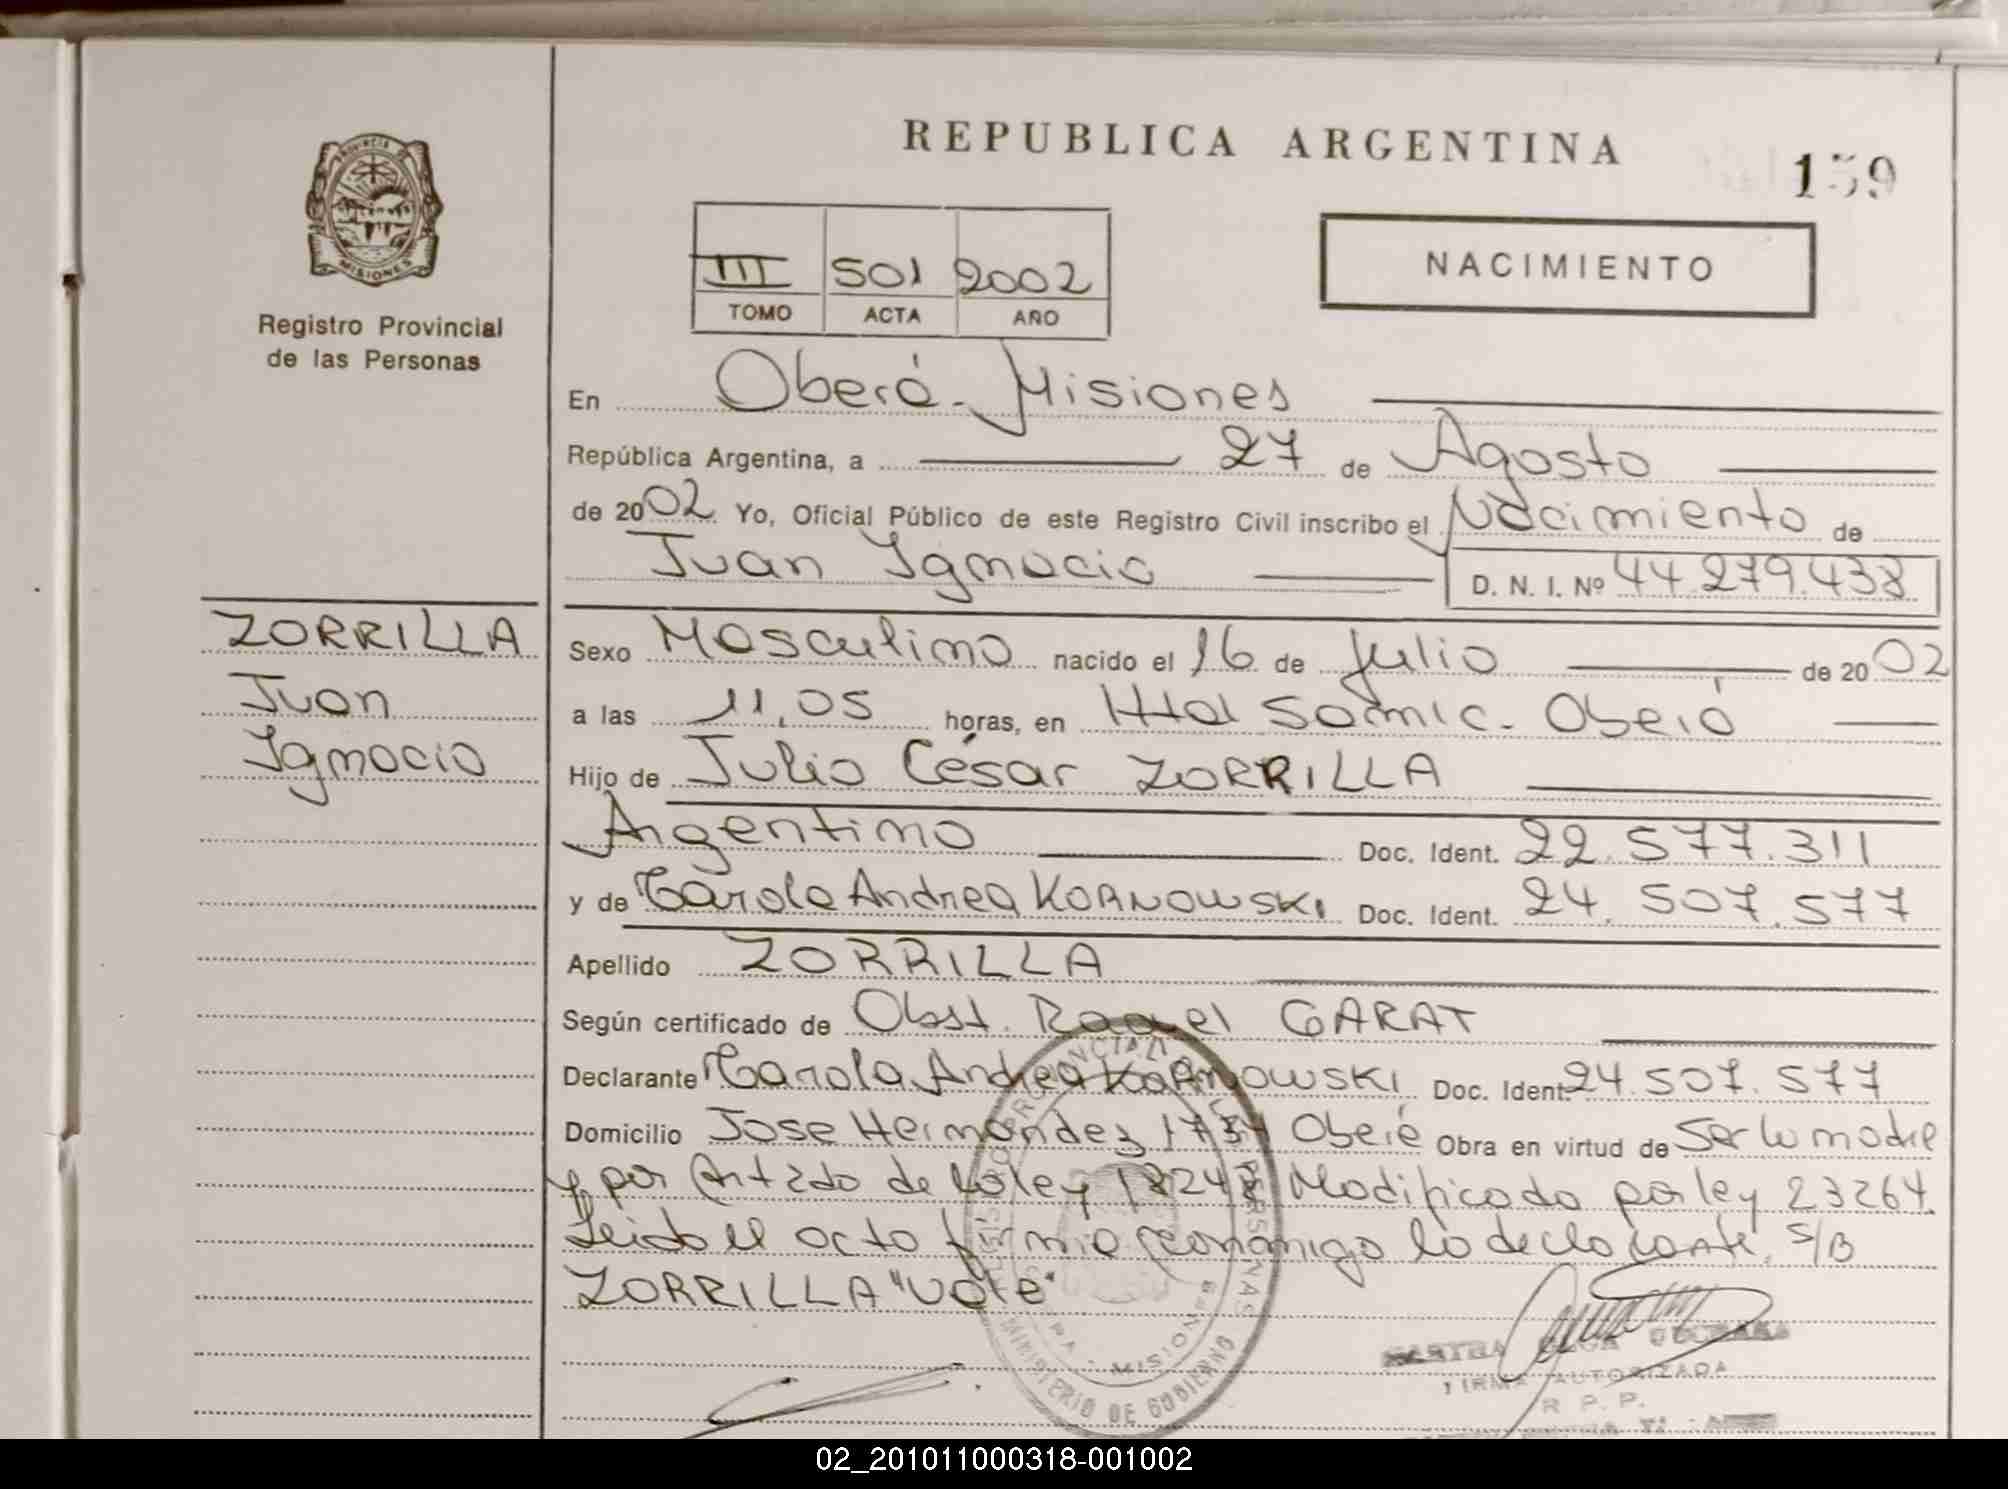 REPUBLICA ARGENTINA
159
PROVINCIA DE
MISIONES
Registro Provincial
de las Personas
III 501 2002
TOMO ACTA AÑO
NACIMIENTO
En Oberá - Misiones
República Argentina, a 27 de Agosto
de 2002 Yo, Oficial Público de este Registro Civil inscribo el Nacimiento de
Juan Ignacio D. N. I. Nº 44.279.438
ZORRILLA
Juan
Ignacio
Sexo Masculino nacido el 16 de Julio de 2002
a las 11,05 horas, en Htal Samic - Oberá
Hijo de Julio César ZORRILLA
Argentino Doc. Ident. 22.577.311
y de Carola Andrea KORNOWSKI Doc. Ident. 24.507.577
Apellido ZORRILLA
Según certificado de Obst. Raquel GARAT
Declarante Carola Andrea KORNOWSKI Doc. Ident. 24.507.577
Domicilio Jose Hernández Oberá Obra en virtud de Ser la madre
y por Art 2do de la ley 18248 Modificado por ley 23264.
Leido el acta firma conmigo la declarante. S/B
ZORRILLA "Vale"
MINISTERIO DE GOBIERNO
MISIONES
FIRMA AUTORIZADA
R. P. P.
02_201011000318-001002